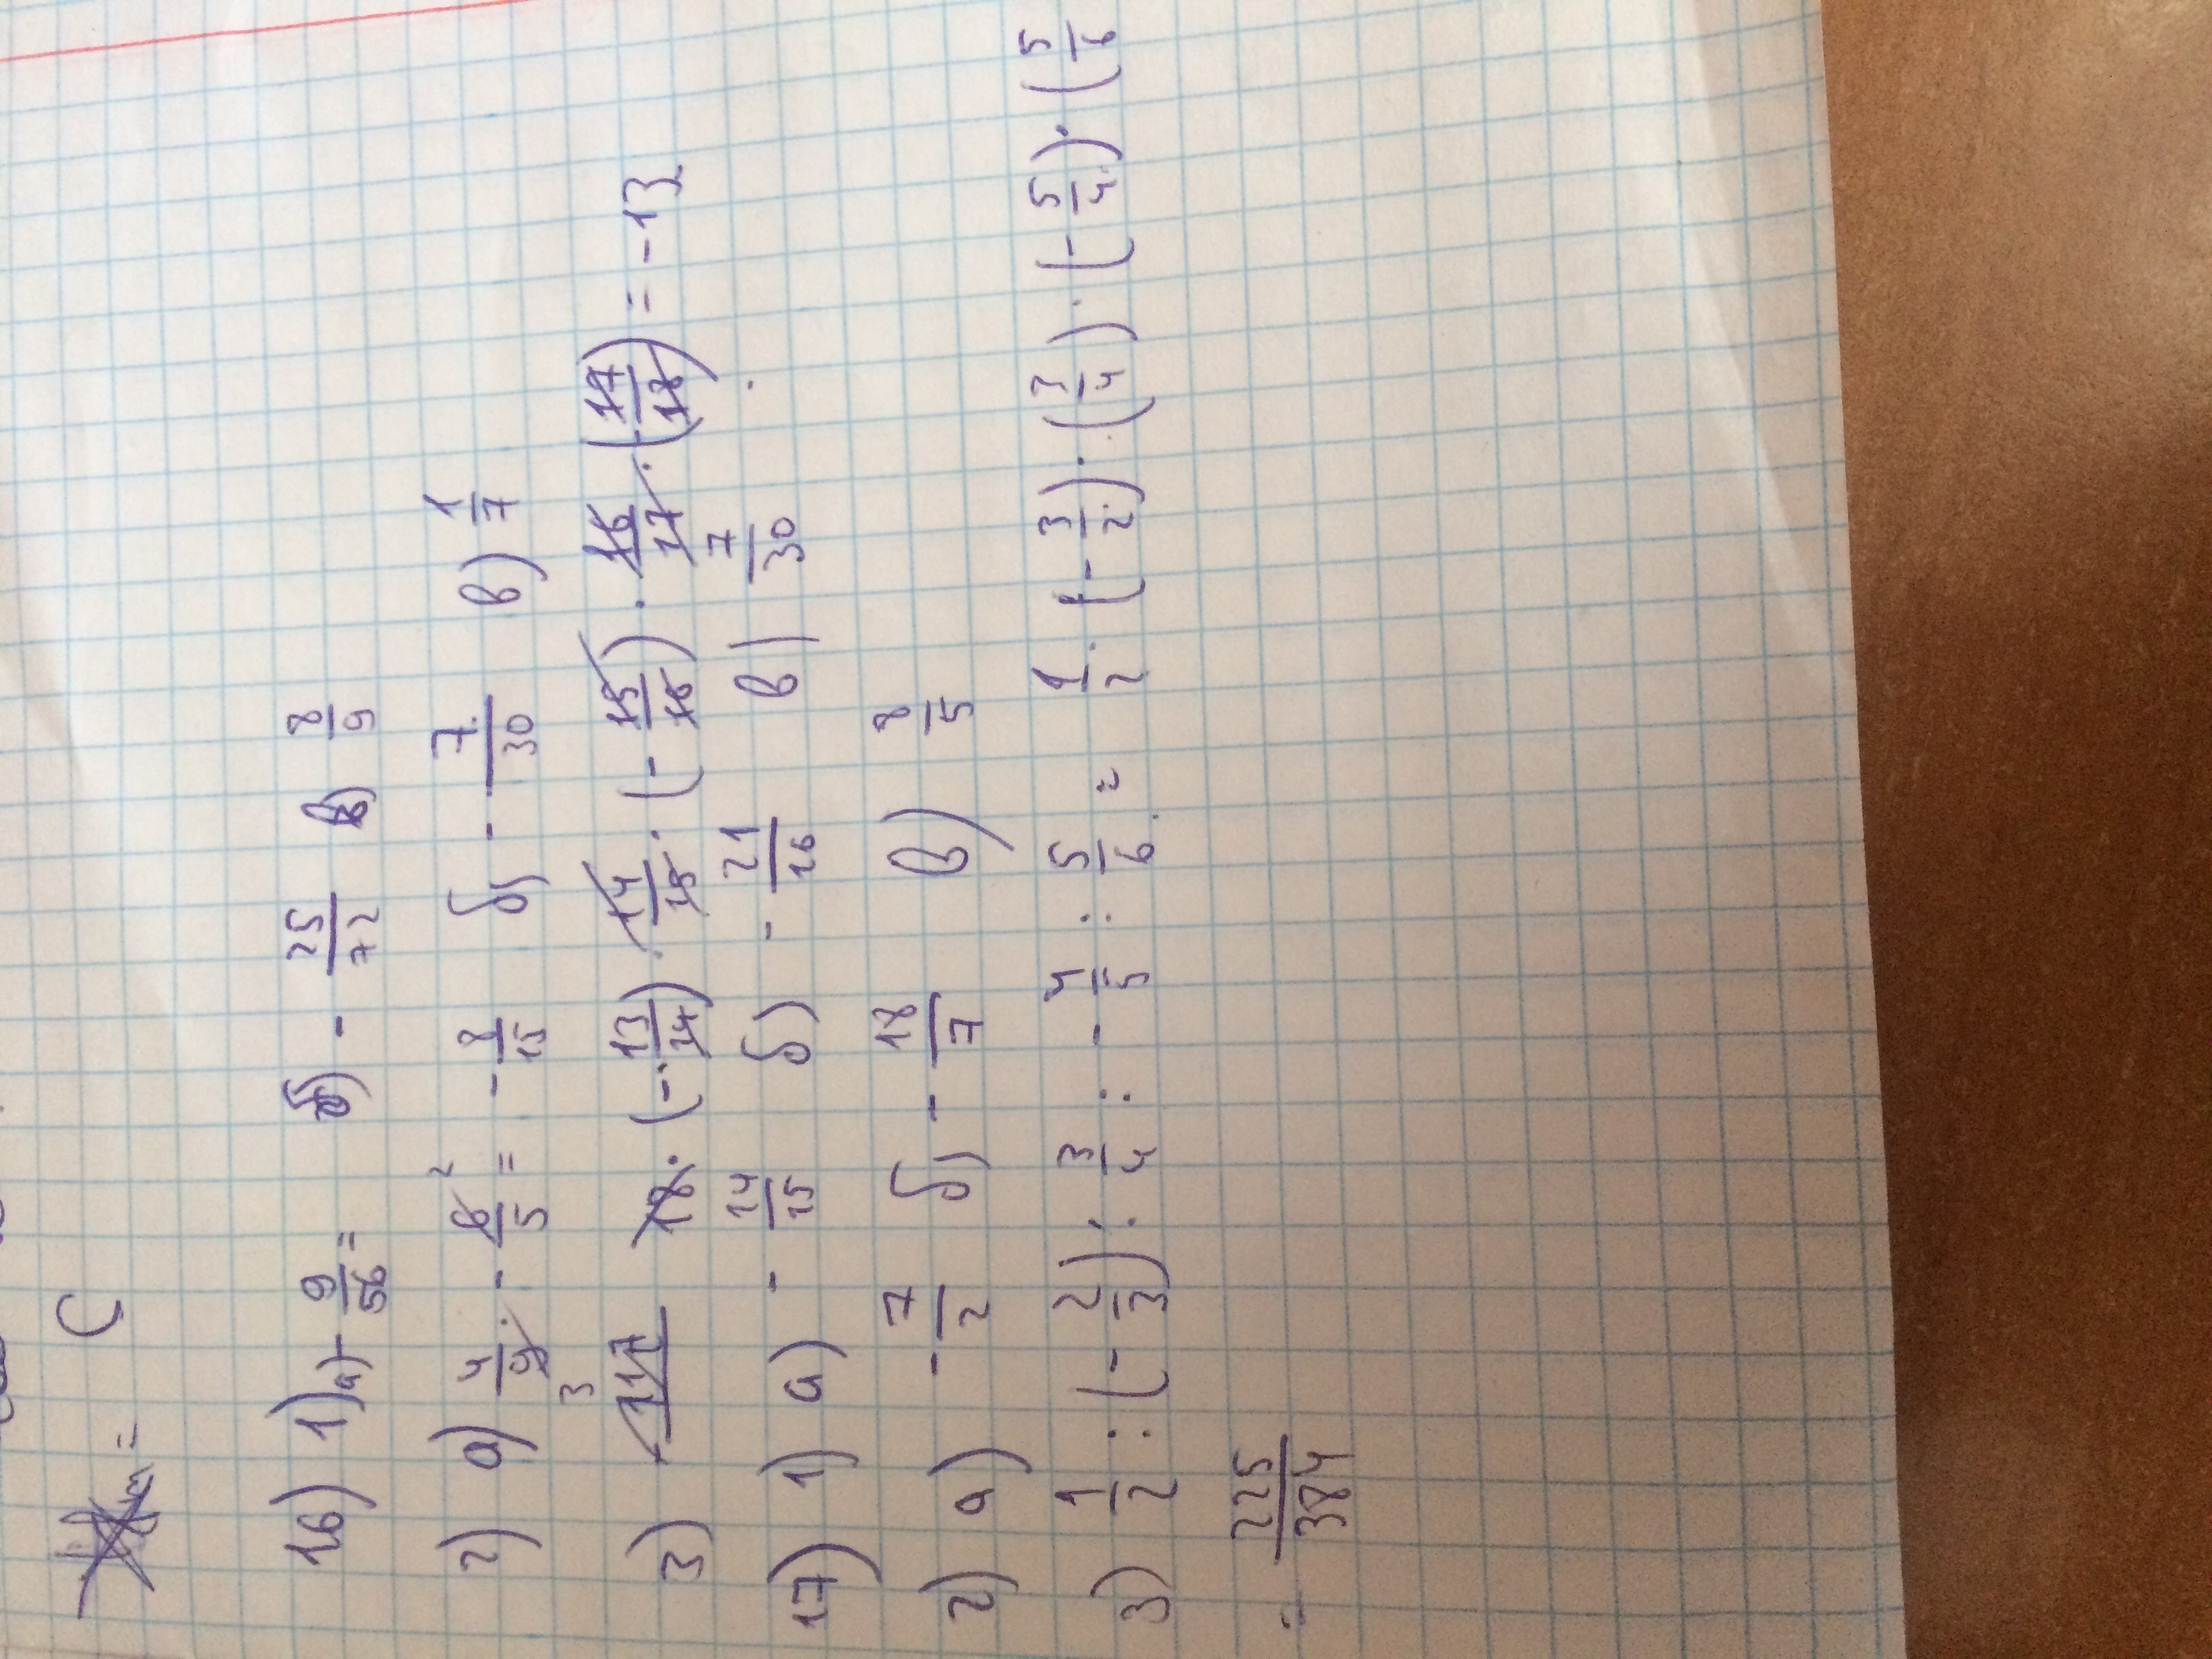 = C
16) 1) а) - 9/56 = б) - 25/72 в) 8/9
2) а) 4/9 · - 6/5 = - 8/15 б) - 7/30 в) 1/7
3) 18 · (- 13/14) · 14/15 · (- 15/16) · 16/17 · (- 17/18) = - 13
17) 1) а) - 14/15 б) - 21/16 в) 7/30
2) а) - 7/2 б) - 18/7 в) 8/5
3) 1/2 : (- 2/3) : 3/4 : - 4/5 : 5/6 = 1/2 · (- 3/2) · (3/4) · (- 5/4) · (5/6
= 225/384